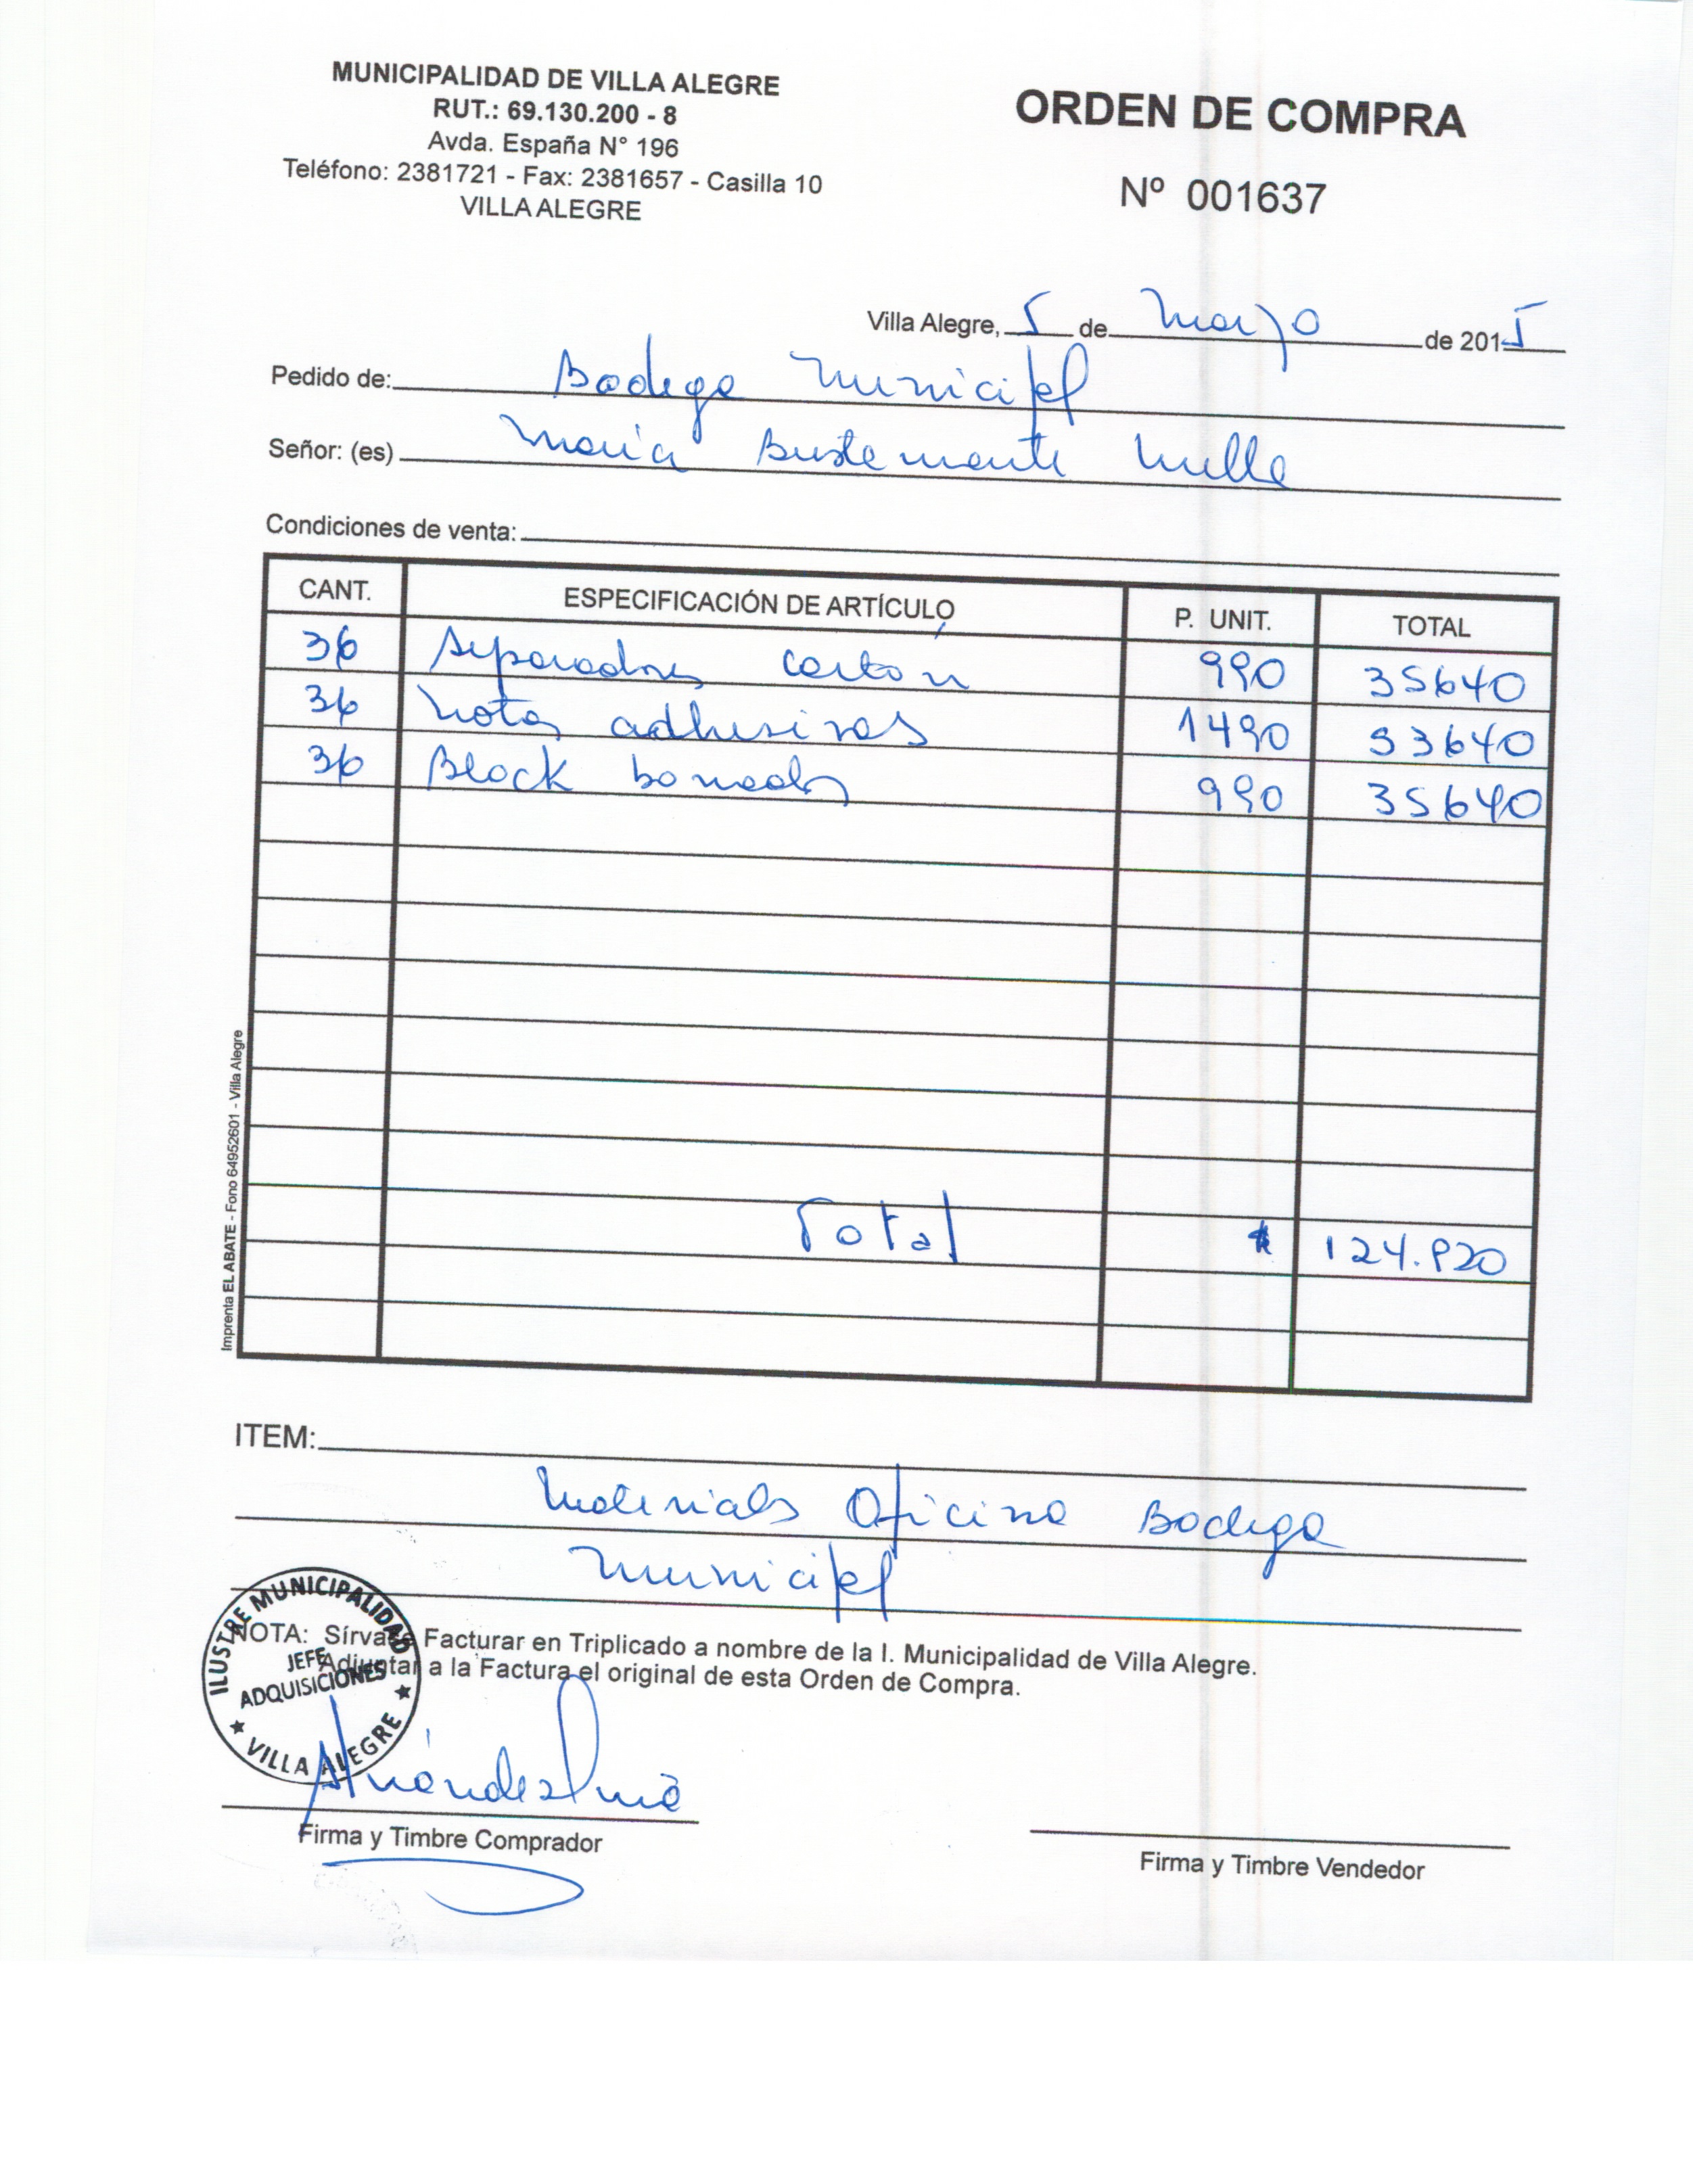 MUNICIPALIDAD DE VILLA ALEGRE
RUT.: 69.130.200 - 8
Avda. España N° 196
Teléfono: 2381721 - Fax: 2381657 - Casilla 10
VILLA ALEGRE
ORDEN DE COMPRA
Nº 001637
Villa Alegre, 5 de Mayo de 2015
Pedido de: Bodega Municipal
Señor: (es) Maria Bustamante
Condiciones de venta:
CANT. ESPECIFICACIÓN DE ARTÍCULO P. UNIT. TOTAL
36 Separadores carton 990 35640
36 Notas adhesivas 1490 53640
36 Block 990 35640
Total 124.920
Imprenta EL ABATE - Fono 64952601 - Villa Alegre
ITEM:
Materiales Oficina Bodega
Municipal
NOTA: Sírvase Facturar en Triplicado a nombre de la I. Municipalidad de Villa Alegre.
Adjuntar a la Factura el original de esta Orden de Compra.
ILUSTRE MUNICIPALIDAD
JEFE
ADQUISICIONES
★ VILLA ALEGRE ★
Firma y Timbre Comprador
Firma y Timbre Vendedor